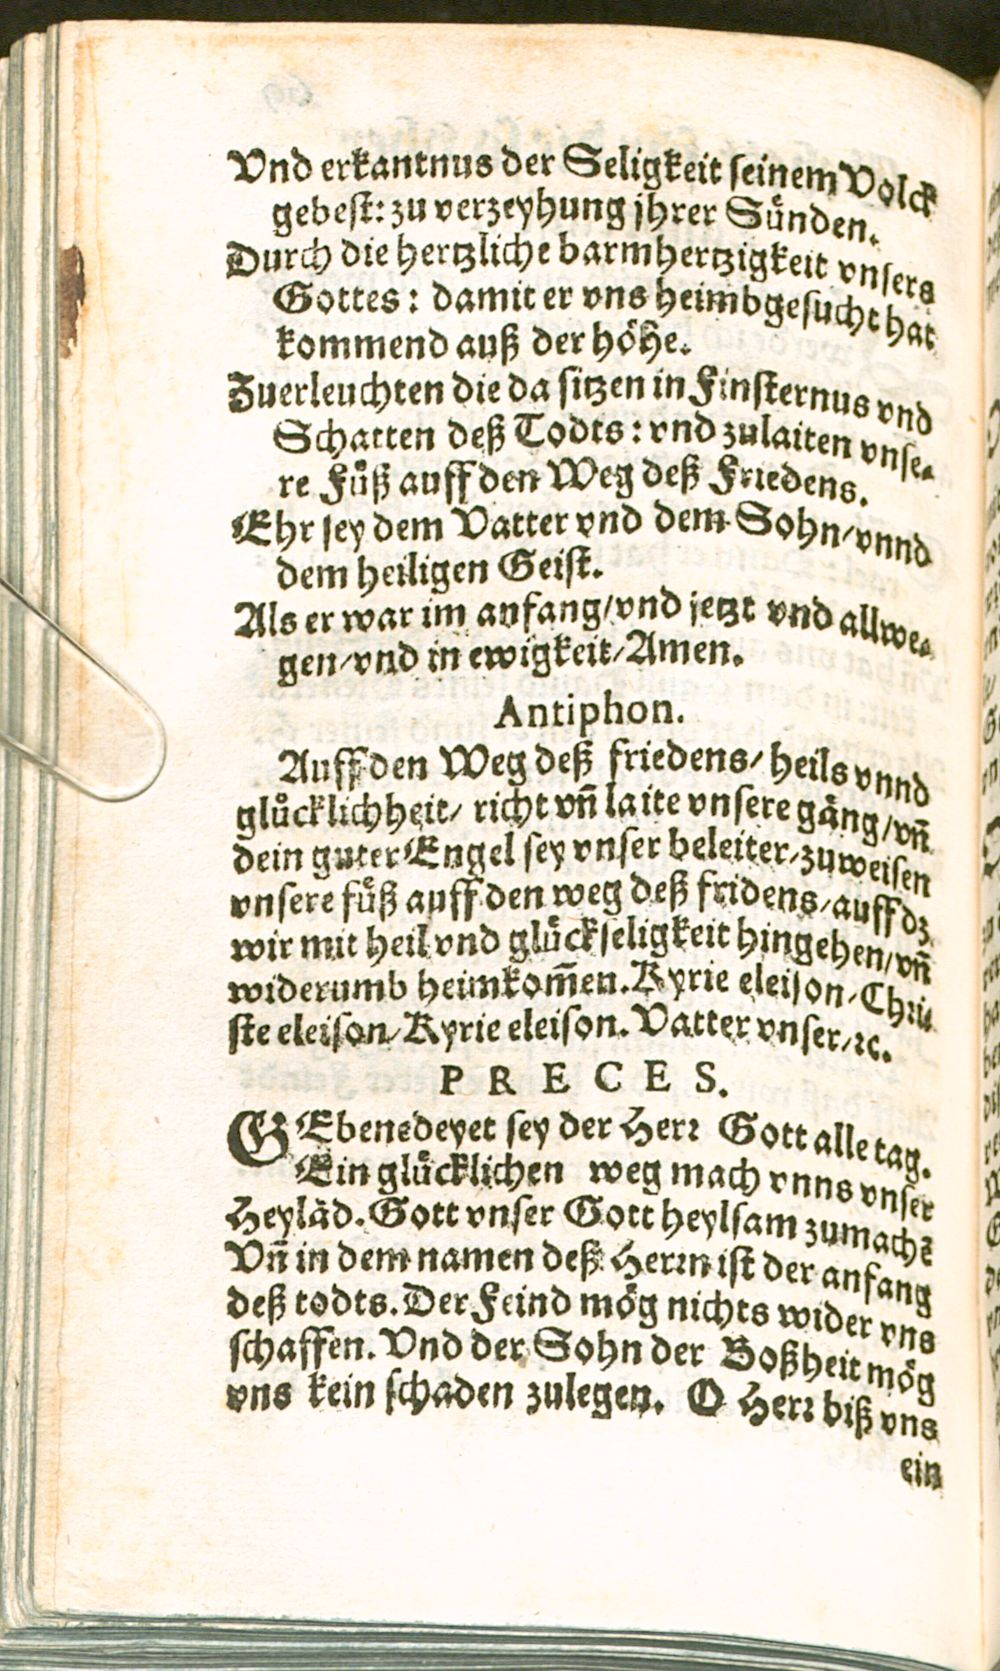 Vnd erkantnus der Seligkeit seinem Volck
gebest: zu verzeyhung jhrer Sünden.
Durch die hertzliche barmhertzigkeit vnsers
Gottes: damit er vns heimbgesucht hat
kommend auß der höhe.
Zuerleuchten die da sitzen in Finsternus vnd
Schatten deß Todts: vnd zulaiten vnse-
re Füß auff den Weg deß Friedens.
Ehr sey dem Vatter vnd dem Sohn/vnnd
dem heiligen Geist.
Als er war im anfang/vnd jetzt vnd allwe-
gen/vnd in ewigkeit/Amen.
Antiphon.
Auff den Weg deß friedens/ heils vnnd
glücklichheit/ richt vñ laite vnsere gäng/vñ
dein guter Engel sey vnser beleiter/zuweisen
vnsere füß auff den weg deß fridens/auff dz
wir mit heil vnd glückseligkeit hingehen/vñ
widerumb heimkom̃en. Kyrie eleison/Chri-
ste eleison/Kyrie eleison. Vatter vnser/ꝛc.
PRECES.
GEbenedeyet sey der Herr Gott alle tag.
Ein glücklichen weg mach vnns vnser
Heylãd. Gott vnser Gott heylsam zumachẽ
Vñ in dem namen deß Herrn ist der anfang
deß todts. Der Feind mög nichts wider vns
schaffen. Vnd der Sohn der Boßheit mög
vns kein schaden zulegen. O Herr biß vns
ein